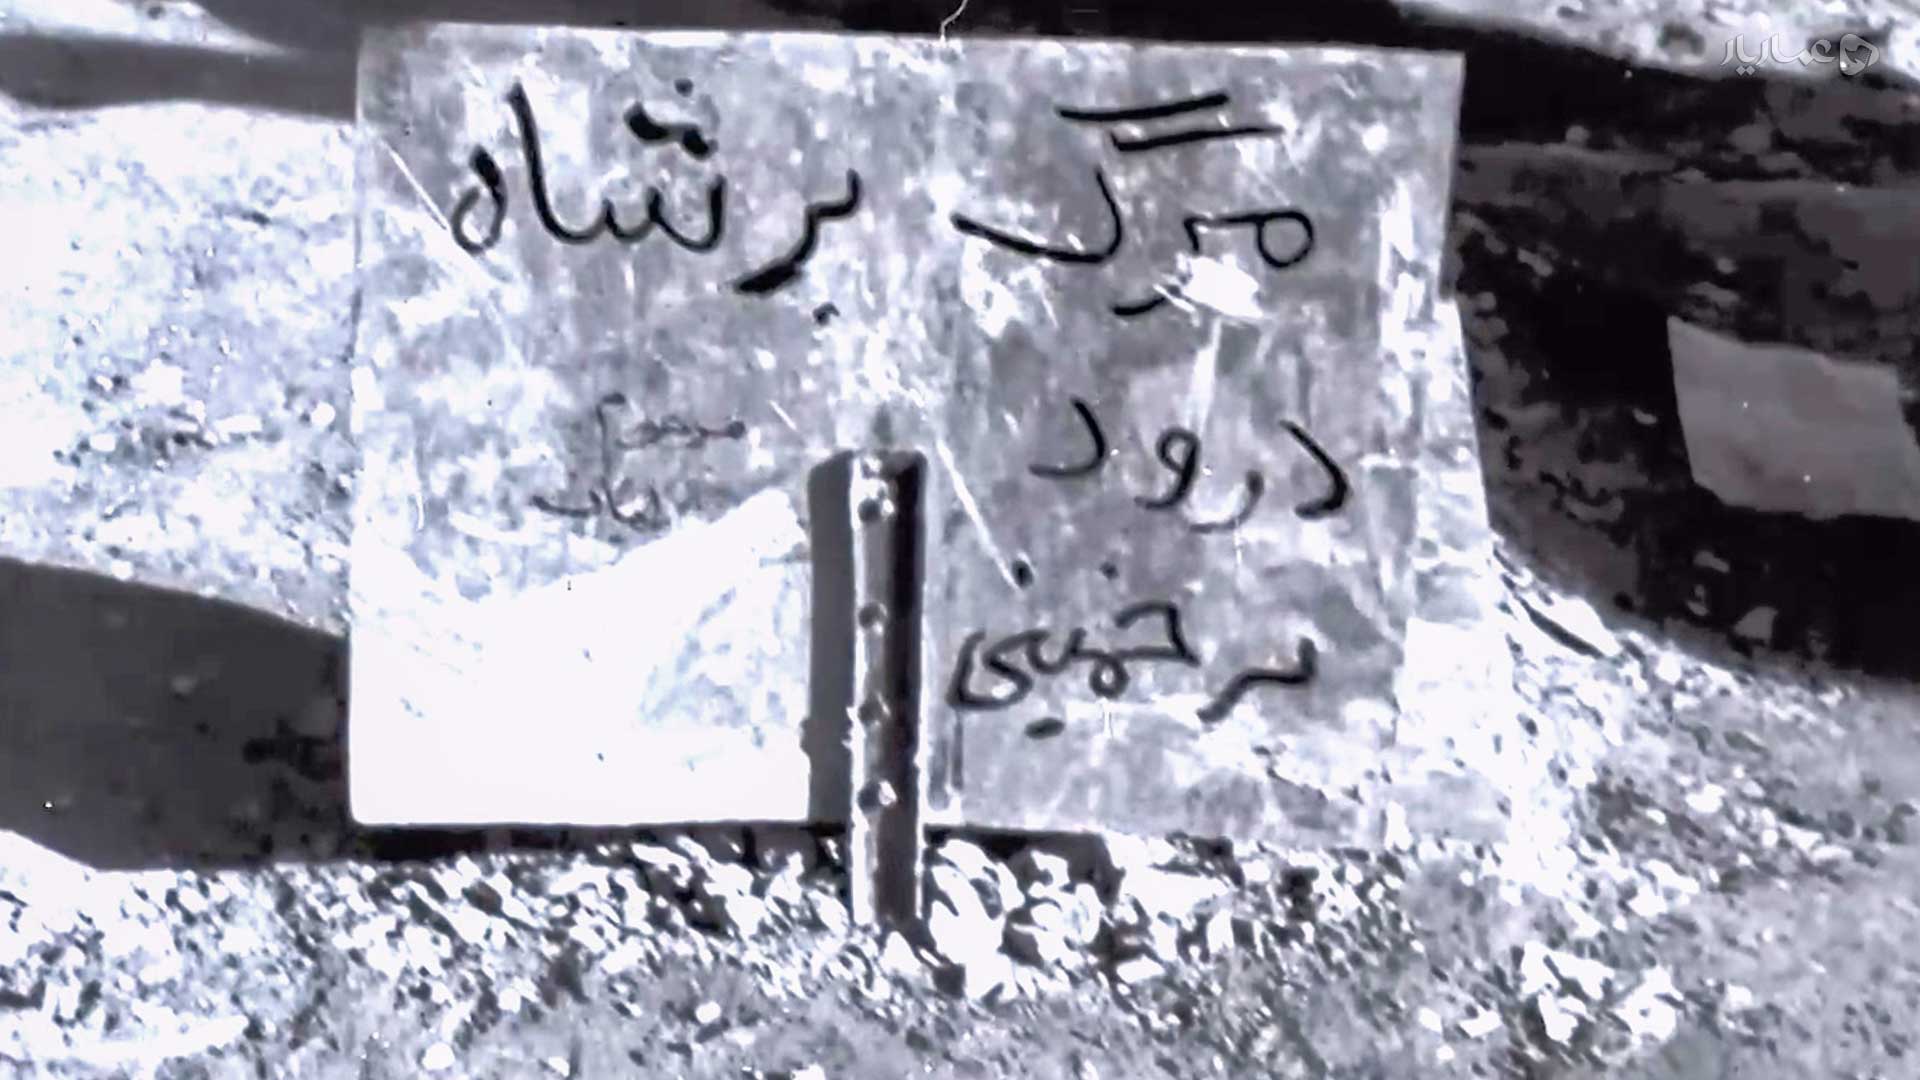 عماریار
مرگ بر شاه
درود
بر خمینی